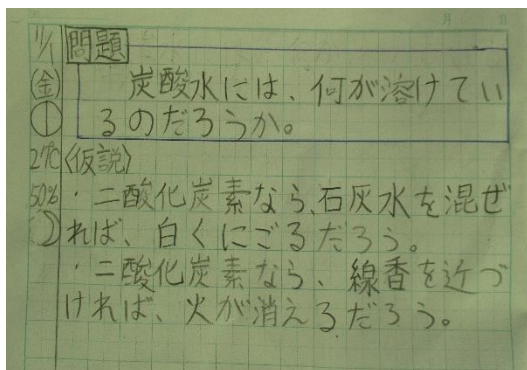 11/1
(金)
①
21℃
50%
問題
炭酸水には、何が溶けてい
るのだろうか。
〈仮説〉
・二酸化炭素なら、石灰水を混ぜ
れば、白くにごるだろう。
・二酸化炭素なら、線香を近づ
ければ、火が消えるだろう。